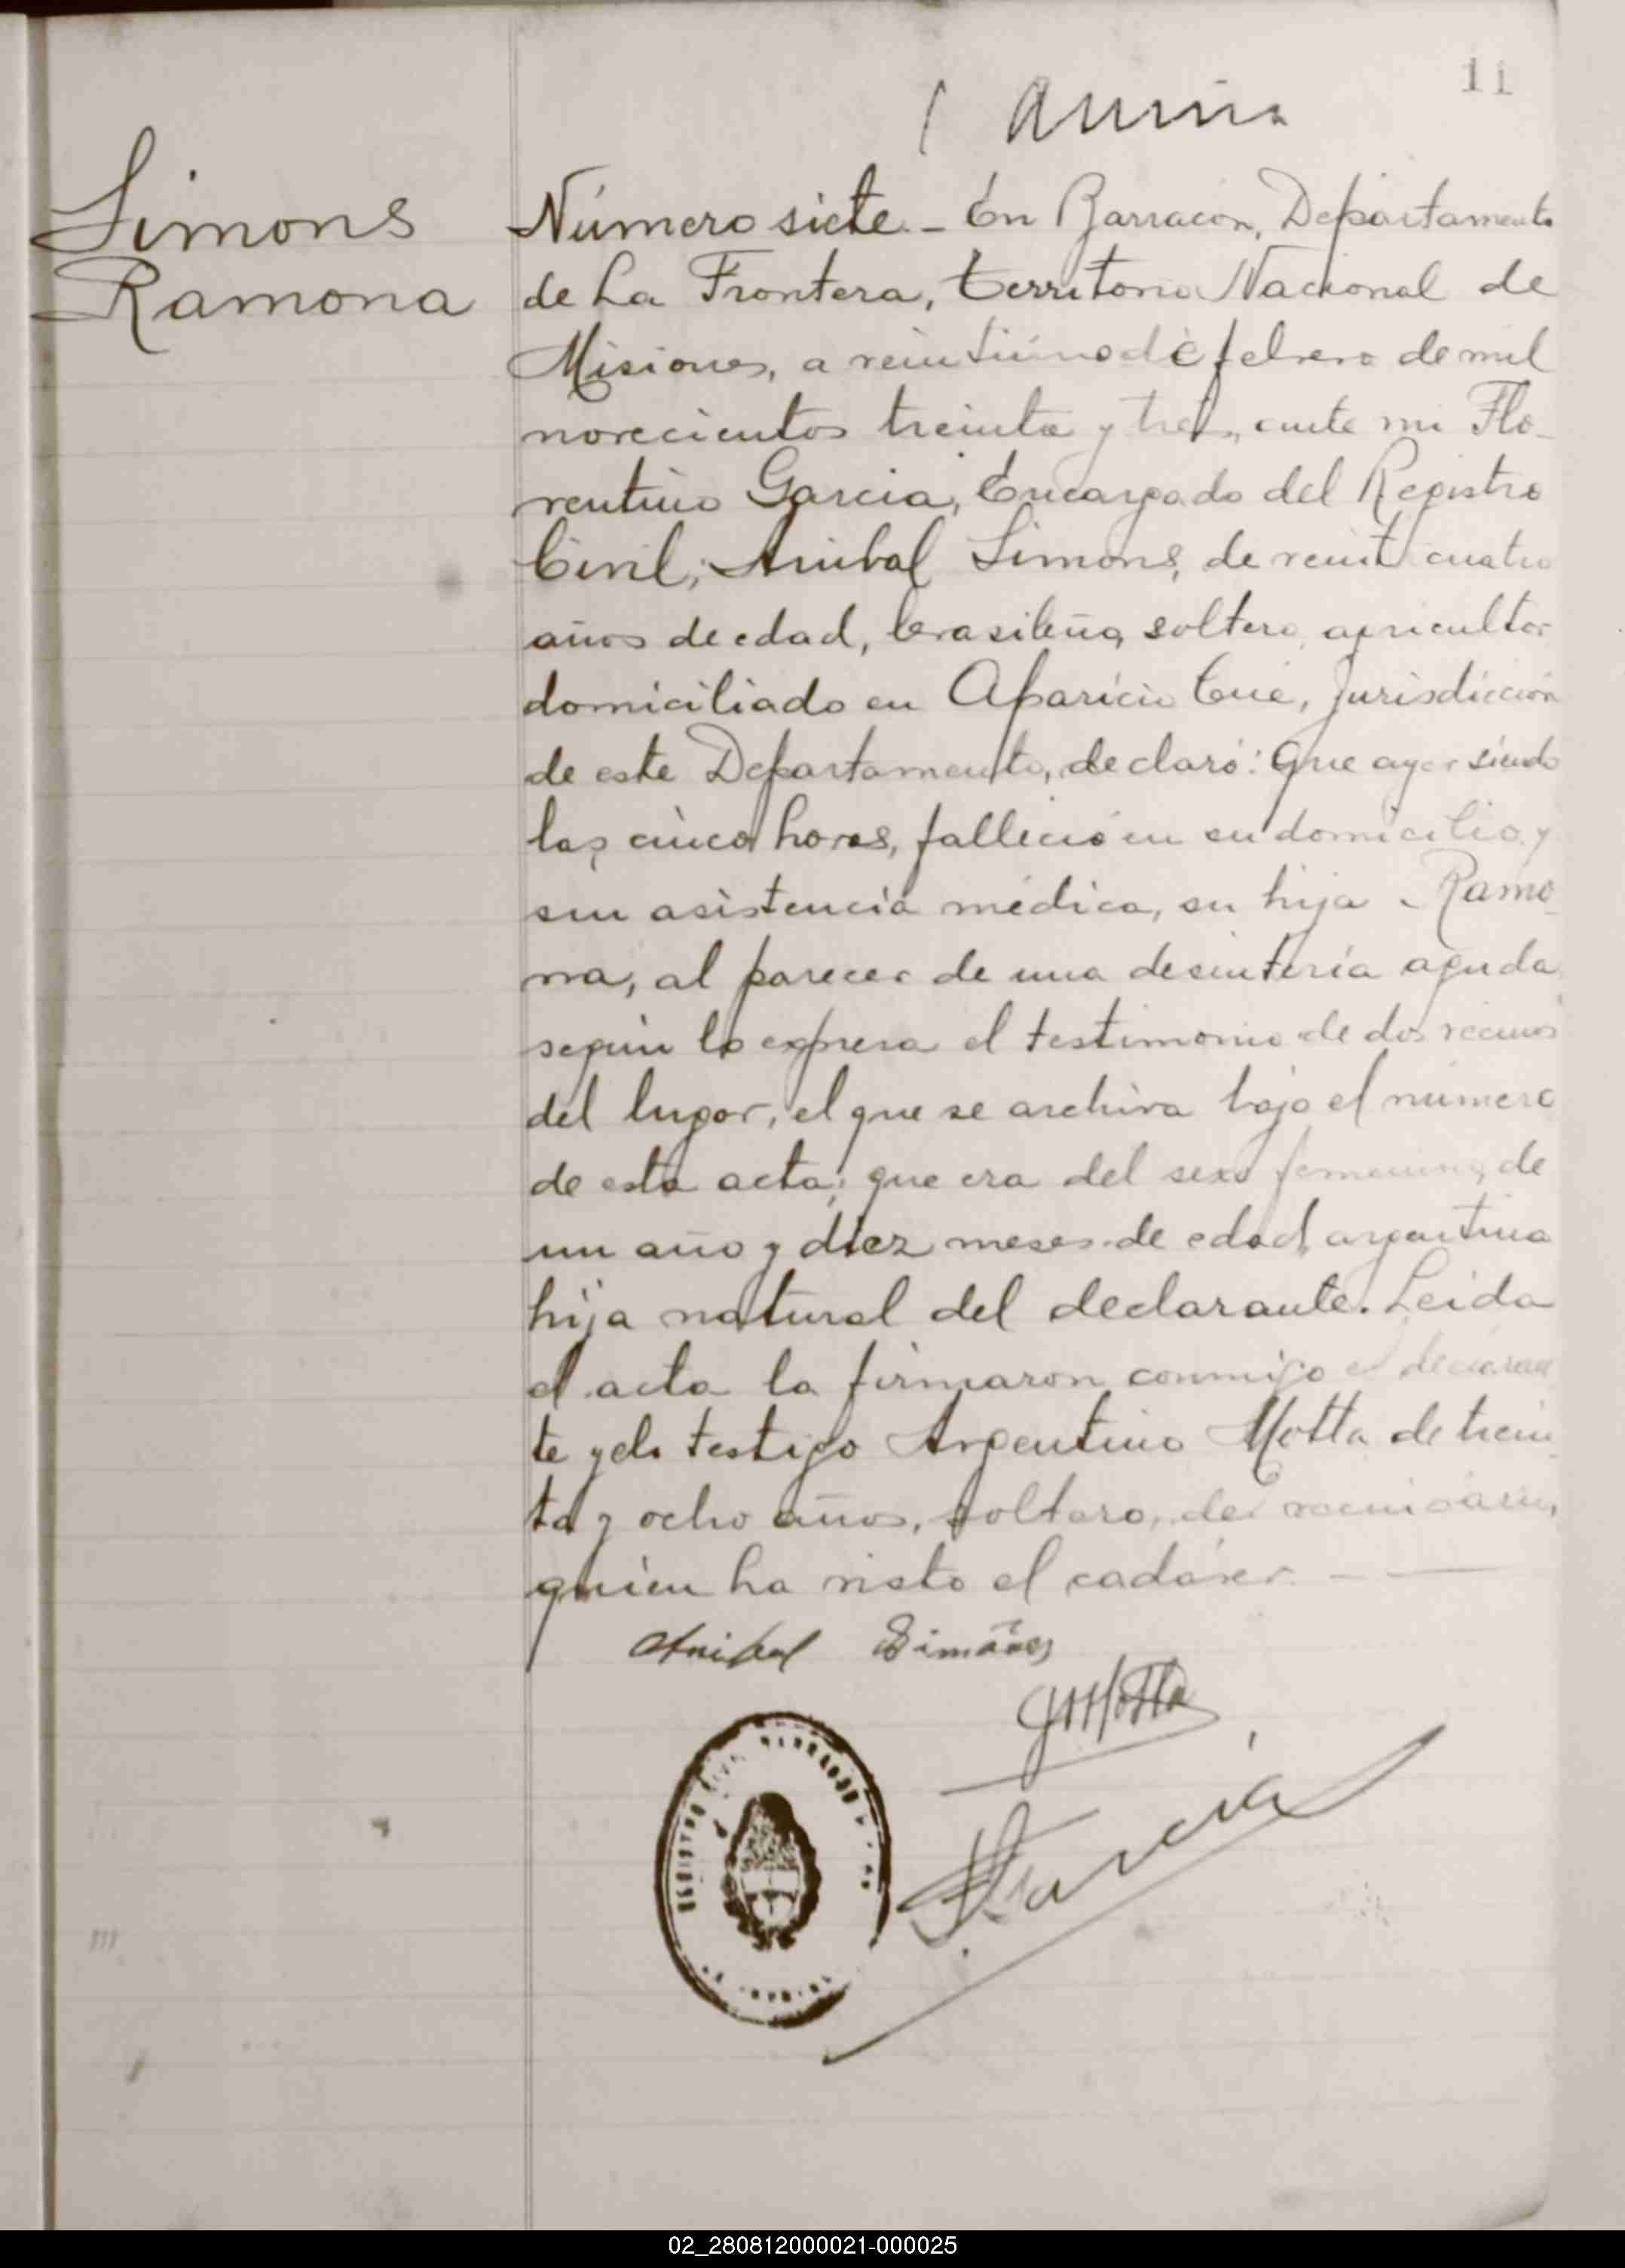 11
Simons
Ramona
Número siete.- En Barracón, Departamento
de La Frontera, territorio Nacional de
Misiones, a veintiuno de febrero de mil
novecientos treinta y tres, ante mi Flo-
rentino Garcia, Encargado del Registro
Civil; Anibal Simons, de veinticuatro
años de edad, brasileño, soltero, agricultor
domiciliado en Aparicio Cué, Jurisdicción
de este Departamento, declaró: Que ayer siendo
las cinco horas, falleció en su domicilio y
sin asistencia médica, su hija Ramo-
na, al parecer de una desintería aguda
según lo expresa el testimonio de dos vecinos
del lugar, el que se archiva bajo el número
de esta acta; que era del sexo femenino, de
un año y diez meses de edad, argentina
hija natural del declarante. Leida
el acta la firmaron conmigo el declaran
te y el testigo Argentino Motta de trein
ta y ocho años, soltero, de
quien ha visto el cadáver. - —
Anibal Simões
Motta
Garcia
REGISTRO
02_280812000021-000025